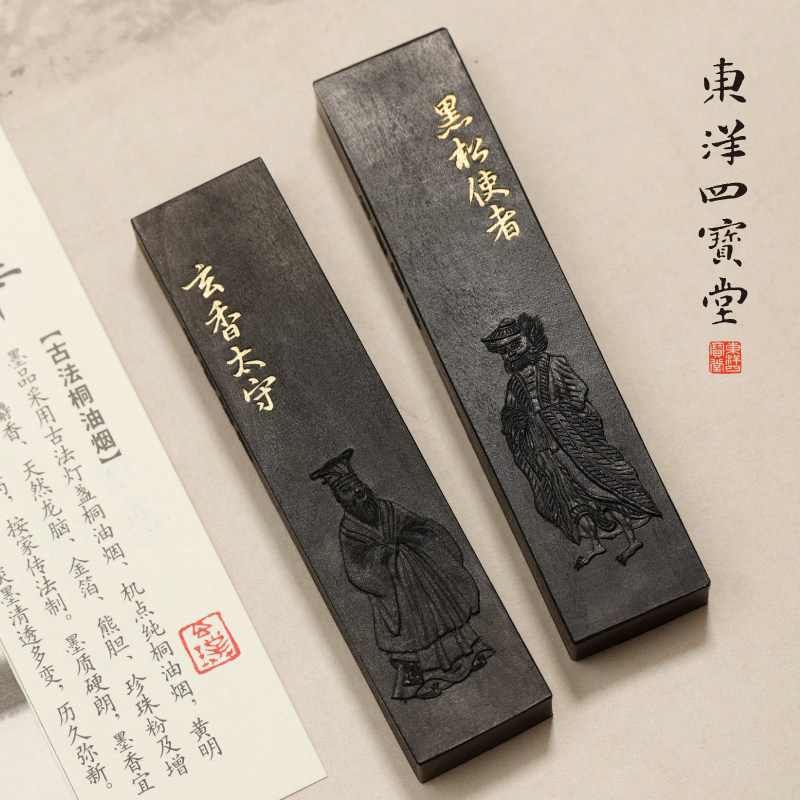 東洋四寶堂
東洋四寶堂
黑松使者
玄香太守
【古法桐油烟】
墨品采用古法灯盏桐油烟、机点纯桐油烟，黄明
香、天然龙脑、金箔、熊胆、珍珠粉及增
按家传法制。墨质硬朗，墨香宜
墨清透多变，历久弥新。